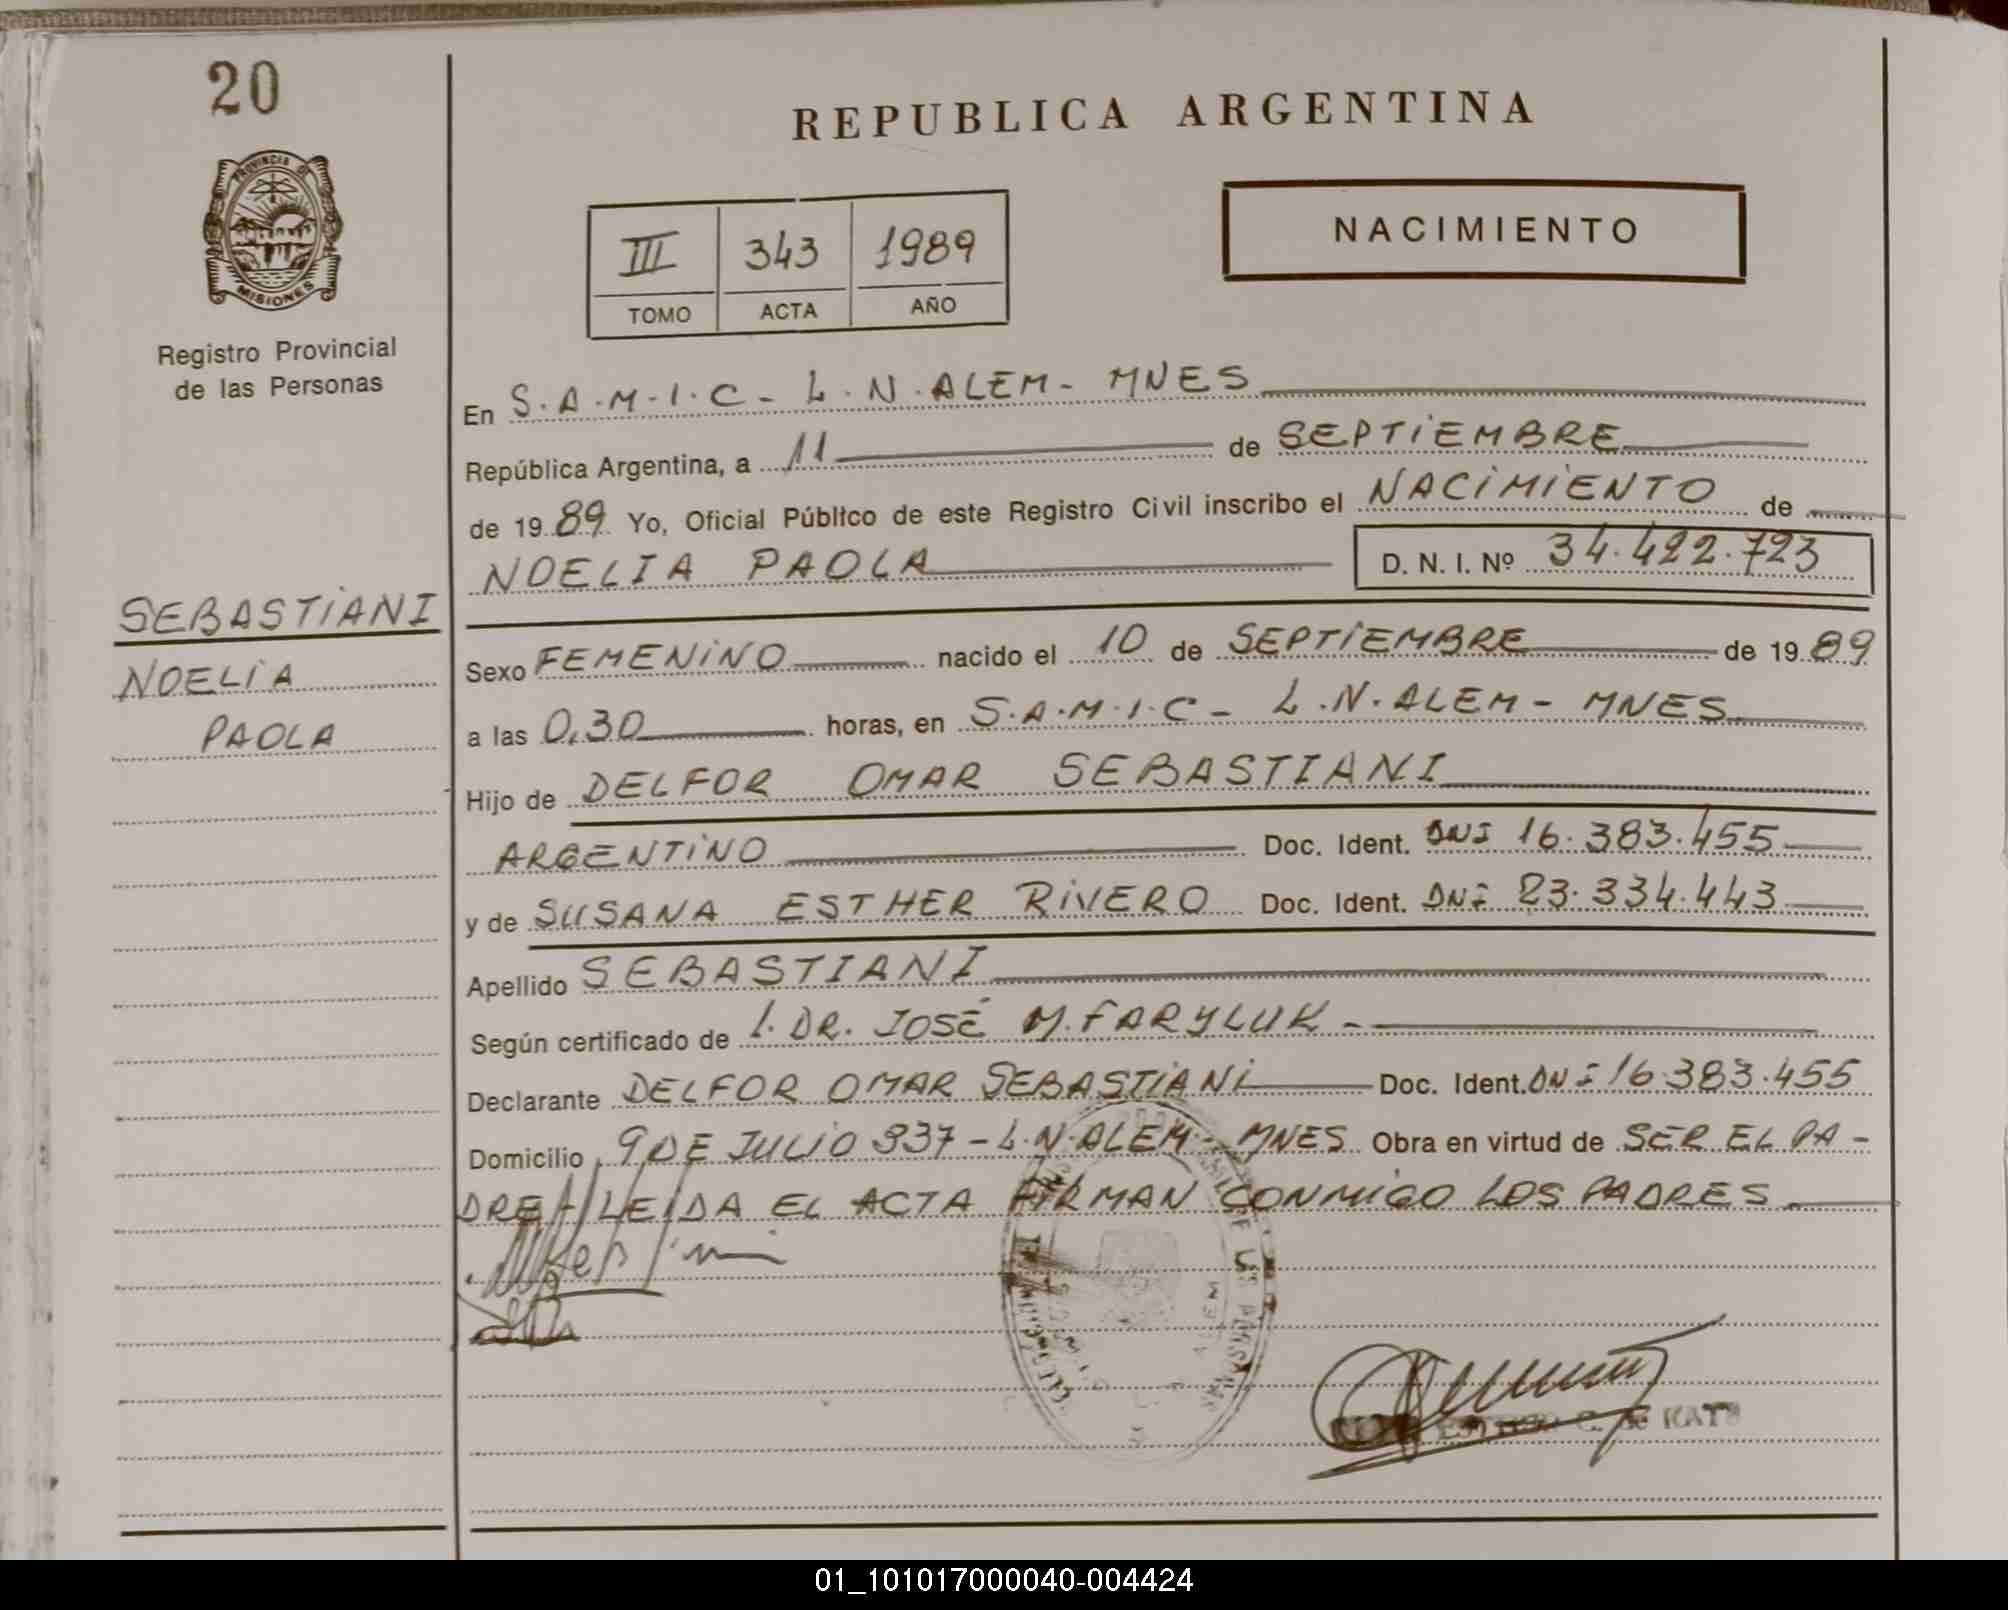 20
REPUBLICA ARGENTINA
PROVINCIA DE
MISIONES
Registro Provincial
de las Personas
III 343 1989
TOMO ACTA AÑO
NACIMIENTO
En S.A.M.I.C - L.N.ALEM - MNES
República Argentina, a 11 de SEPTIEMBRE
de 19 89 Yo, Oficial Público de este Registro Civil inscribo el NACIMIENTO de
NOELIA PAOLA D. N. I. Nº 34.422.723
SEBASTIANI
NOELIA
PAOLA
Sexo FEMENINO nacido el 10 de SEPTIEMBRE de 19 89
a las 0,30 horas, en S.A.M.I.C - L.N.ALEM - MNES
Hijo de DELFOR OMAR SEBASTIANI
ARGENTINO Doc. Ident. DNI 16.383.455
y de SUSANA ESTHER RIVERO Doc. Ident. DNI 23.334.443
Apellido SEBASTIANI
Según certificado de 1. DR. JOSÉ M. FARYLUK -
Declarante DELFOR OMAR SEBASTIANI Doc. Ident. DNI 16.383.455
Domicilio 9 DE JULIO 337 - L.N.ALEM - MNES Obra en virtud de SER EL PA-
DRE - LEIDA EL ACTA FIRMAN CONMIGO LOS PADRES
01_101017000040-004424